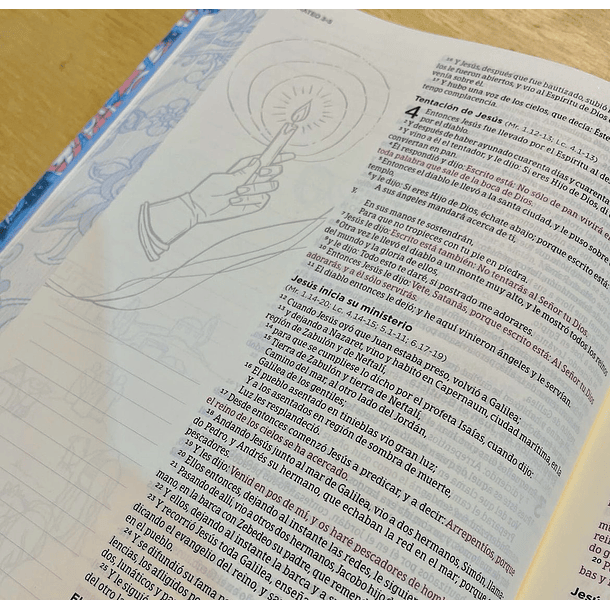 ATEO 3-5
16 Y Jesús, después que fue bautizado, subió
los le fueron abiertos, y vio al Espíritu de Dios
venía sobre él.
17 Y hubo una voz de los cielos, que decía: Éste
tengo complacencia.
Tentación de Jesús (Mr. 1.12-13; Lc. 4.1-13)
4 Entonces Jesús fue llevado por el Espíritu al de
por el diablo.
2 Y después de haber ayunado cuarenta días y cuarenta
3 Y vino a él el tentador, y le dijo: Si eres Hijo de Dios, di
conviertan en pan.
4 Él respondió y dijo: Escrito está: No sólo de pan vivirá el
toda palabra que sale de la boca de Dios.
5 Entonces el diablo le llevó a la santa ciudad, y le puso sobre
templo,
6 y le dijo: Si eres Hijo de Dios, échate abajo; porque escrito está:
A sus ángeles mandará acerca de ti,
y,
En sus manos te sostendrán,
Para que no tropieces con tu pie en piedra.
7 Jesús le dijo: Escrito está también: No tentarás al Señor tu Dios.
8 Otra vez le llevó el diablo a un monte muy alto, y le mostró todos los reinos
del mundo y la gloria de ellos,
9 y le dijo: Todo esto te daré, si postrado me adorares.
10 Entonces Jesús le dijo: Vete, Satanás, porque escrito está: Al Señor tu Dios
adorarás, y a él sólo servirás.
11 El diablo entonces le dejó; y he aquí vinieron ángeles y le servían.
Jesús inicia su ministerio
(Mr. 1.14-20; Lc. 4.14-15; 5.1-11; 6.17-19)
12 Cuando Jesús oyó que Juan estaba preso, volvió a Galilea;
13 y dejando a Nazaret, vino y habitó en Capernaum, ciudad marítima, en la
región de Zabulón y de Neftalí,
14 para que se cumpliese lo dicho por el profeta Isaías, cuando dijo:
15 Tierra de Zabulón y tierra de Neftalí,
Camino del mar, al otro lado del Jordán,
Galilea de los gentiles;
16 El pueblo asentado en tinieblas vio gran luz;
Y a los asentados en región de sombra de muerte,
Luz les resplandeció.
17 Desde entonces comenzó Jesús a predicar, y a decir: Arrepentíos, porque
el reino de los cielos se ha acercado.
18 Andando Jesús junto al mar de Galilea, vio a dos hermanos, Simón, llama-
do Pedro, y Andrés su hermano, que echaban la red en el mar; porque
pescadores.
19 Y les dijo: Venid en pos de mí, y os haré pescadores de hom
20 Ellos entonces, dejando al instante las redes, le siguie
21 Pasando de allí, vio a otros dos hermanos, Jacobo hijo d
mano, en la barca con Zebedeo su padre, que remen
22 Y ellos, dejando al instante la barca y a s
23 Y recorrió Jesús toda Galilea, enseña
dicando el evangelio del reino, y sa
en el pueblo.
24 Y se difundió su fama po
lencias, los afligidos po
dos, lunáticos y pa
25 Y le siguió
del otro la
El
20
bas y
Jesú